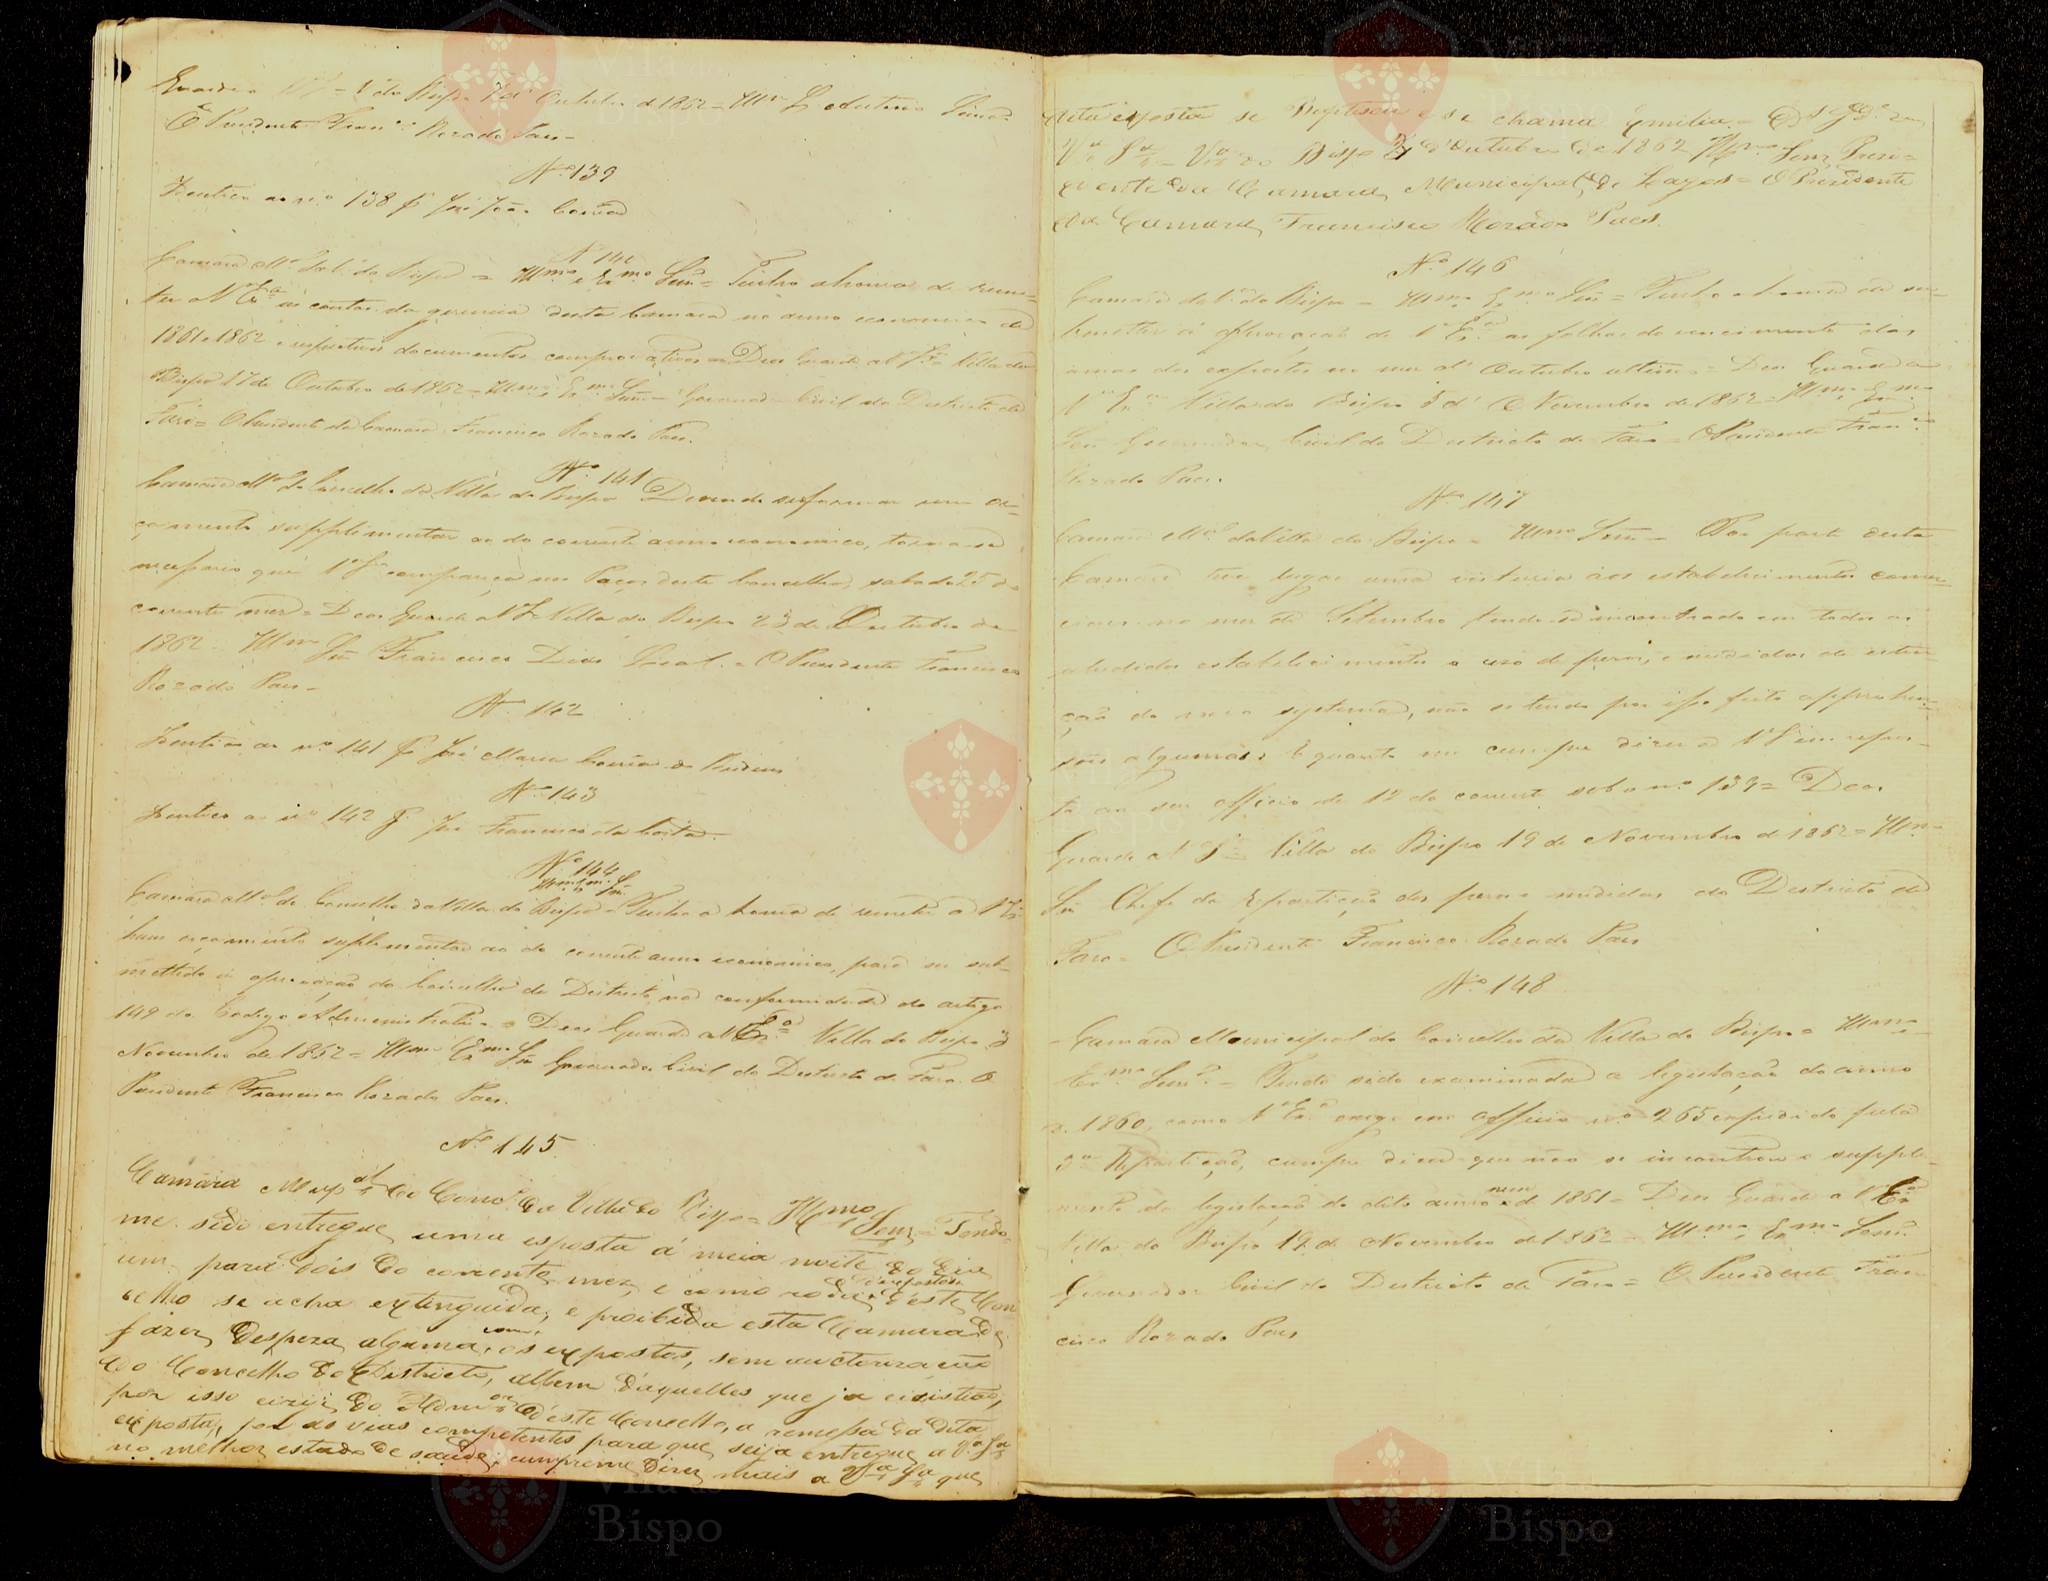 do Bispo 7 d'Outubro de 1862 = Illmo Snr Antonio
O Presidente Franco Rozado Paes =
No 139
Identico ao no 138 pa José João Corrêa
No 140
Camara Mal da Va do Bispo = Illmo e Exmo Snr = Tenho a honra de remet-
ter a V Exa as contas da gerencia desta Camara no anno economico de
1861 e 1862 e respectivos documentos comprovativos = Deos Guarde a V Exa Villa do
Bispo 17 de Outubro de 1862 = Illmo e Exmo Snr = Governador Civil do Destricto de
Faro = O Presidente da Camara Francisco Rozado Paes.
No 141
Camara Mal do Concelho da Villa do Bispo Devendo se formar um or-
çamento supplimentar ao do corrente anno economico, torna-se
necessario que V Sa compareça nos Paços deste Concelho, sabado 25 do
corrente mez = Deos Guarde a V Sa Villa do Bispo 23 de Outubro de
1862. Illmo Snr Francisco Dias Leal. = O Presidente Francisco
Rozado Paes =
No 142
Identico ao no 141 pa José Maria Corrêa
No 143
Identico ao no 142 pa José Francisco da Costa
No 144
Illmo Exmo Snr
Camara Mal do Concelho da Villa do Bispo = Tenho a honra de remetter a V Exa
hum orçamento suplementar ao do corrente anno economico, para ser sub-
mettido á aprovação do Concelho de Districto na conformidade do artigo
149 do Codigo Administrativo = Deos Guarde a V Exa Villa do Bispo 3
Novembro de 1862 = Illmo Exmo Snr Governador Civil do Destricto de Faro. O
Presidente Francisco Rozado Paes.
No 145
Camara Mupal do Conco da Villa do Bispo = Illmo Senr = Tendo-
me sido entregue, uma esposta á meia noite do dia
um para dois do corrente mez, e como a roda d'expostos d'este Con
celho se acha extinguida, e proibida esta Camara de
fazer, despeza alguma, com os expostos, sem auctorização
do Concelho do Districto, alhem d'aquelles que ja existião,
por isso exigi do Admor d'este Concelho, a remessa da dita
exposta, pelas vias competentes para que seija entregue a Va Sa
no melhor estado de saúde; cumpreme dizer mais a Va Sa que
dita exposta se Bautisou e se chama Emilia = Ds Gde a
Va Sa = Va do Bispo d'Outubro de 1862 Illmo Senr Presi=
dente da Camara Municipal de Lagos = O Presidente
da Camara Francisco Rozado Paes.
No 146
Camara da Va do Bispo = Illmo Exmo Snr = Tenho a honra de su-
bmetter á aprovação de V Exa as folhas do vencimento das
amas dos expostos no mez d' Outubro ultimo = Deos Guarde a
V Exa Villa do Bispo 3 d' Novembro de 1862 = Illmo Exmo
Snr Governador Civil do Destricto de Faro = O Presidente Franco
Rozado Paes.
No 147
Camara Mal da Villa do Bispo = Illmo Snr = Por parte desta
Camara teve lugar uma vistoria aos estabelecimentos comer-
ciaes no mez de Setembro tendo-se encontrado em todos os
aludidos estabelecimentos o uso de pesos, e medidas de
do novo systema, não se tendo por isso feito apprehen-
sões algumas. É quanto me cumpre dizer a V S em respos-
ta ao seu officio de 12 do corrente sob o no 139 = Deos
Guarde a V Sa Villa do Bispo 19 de Novembro de 1862 = Illmo
Snr Chefe da Repartição dos pesos e medidas do Destricto de
Faro = O Presidente Francisco Rozado Paes
No 148
Camara Municipal do Concelho da Villa do Bispo = Illmo
Exmo Senr = Tendo sido examinada a legislação do anno
de 1860, como V Exa exige em officio no 265 expedido pela
3a Repartição, cumpre dizer que não se incontrou o supple-
mento da legislação do dito anno nem de 1861 = Deos Guarde a V Exa
Villa do Bispo 19 de Novembro de 1862 = Illmo e Exmo Senr
Governador Civil do Destricto de Faro = O Presidente Fran
cisco Rozado Paes
Vila do
Bispo